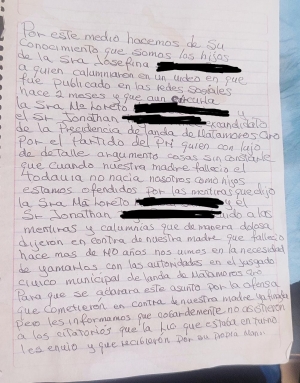 Por este medio hacemos de su
conocimiento que somos los hijos
de la Sra Josefina
a quien calumniaron en un video en que
fue publicado en las redes sosiales
hace 2 meses y que aun circula
la Sra Ma Loreto y
el Sr Jonathan excandidato
de la Precidencia de landa de Matamoros Qro
Por el Partido del PN quien con lujo
de detalle argumento cosas sin constarle
que cuando nuestra madre fallecio el
todavia no nacia nosotros como hijos
estamos ofendidos por las mentiras que dijo
la Sra Ma Loreto y el
Sr Jonathan a las
mentiras y calumnias que de manera dolosa
dijeron en contra de nuestra madre que fallecio
hace mas de 40 años nos vimos en la necesidad
de yamarlos con las autoridades en el jusgado
civico municipal de landa de Matamoros Qro
Para que se aclarara este asunto por la ofensa
que cometieron en contra de nuestra madre ya finada
pero les informamos que cobardemente no asistieron
a los citatorios que la Lic que estaba en turno
les envio y que recibieron por su propia mano